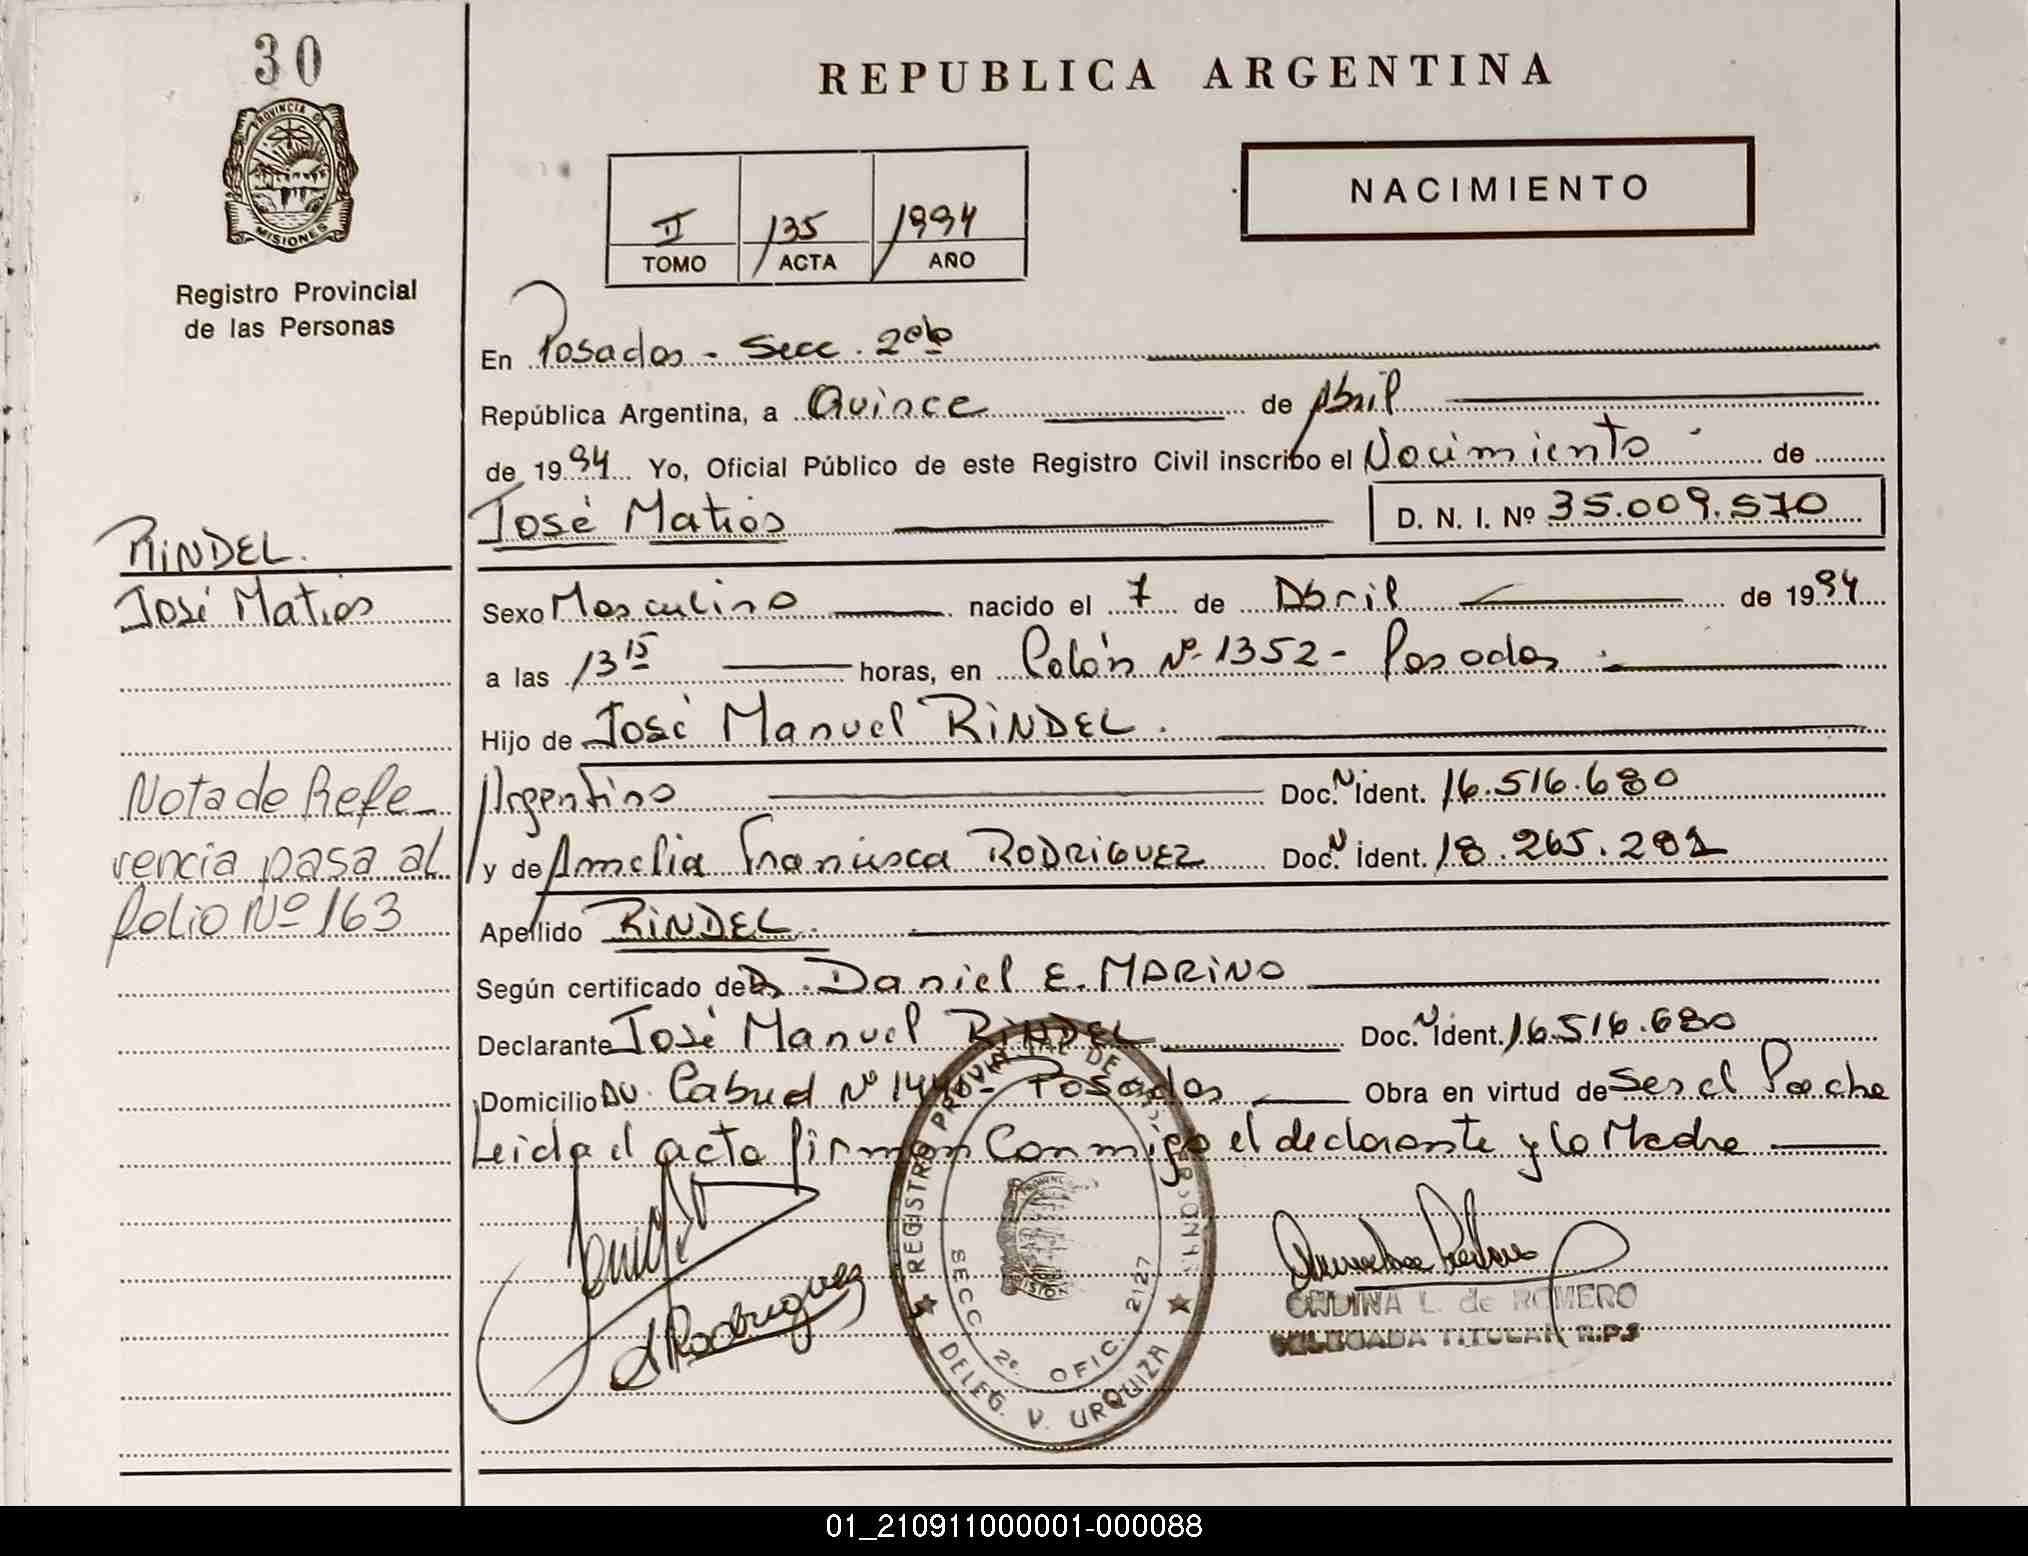 30
REPUBLICA ARGENTINA
PROVINCIA DE
MISIONES
Registro Provincial
de las Personas
NACIMIENTO
II 135 1994
TOMO ACTA AÑO
En Posadas - Secc. 2da
República Argentina, a Quince de Abril
de 1994 Yo, Oficial Público de este Registro Civil inscribo el Nacimiento de
José Matias D. N. I. Nº 35.009.570
RINDEL.
José Matias
Sexo Masculino nacido el 7 de Abril de 1994
a las 13 15 horas, en Colón Nº 1352 - Posadas
Hijo de José Manuel RINDEL.
Argentino Doc. N ident. 16.516.680
y de Amelia Francisca RODRIGUEZ Doc. N ident. 18.265.281
Nota de Refe-
rencia pasa al
folio Nº 163
Apellido RINDEL.
Según certificado de Dr. Daniel E. MARINO
Declarante José Manuel RINDEL Doc. N ident. 16.516.680
Domicilio Av. Cabred Nº Posadas Obra en virtud de Ser el Padre
Leida el acta firman Conmigo el declarante y la Madre
A Rodriguez
REGISTRO PROVINCIAL DE LAS PERSONAS
SECC 2º. OFIC. 2127
DELEG. V. URQUIZA
ONDINA L. de ROMERO
DELEGADA TITULAR R.P.S
01_210911000001-000088